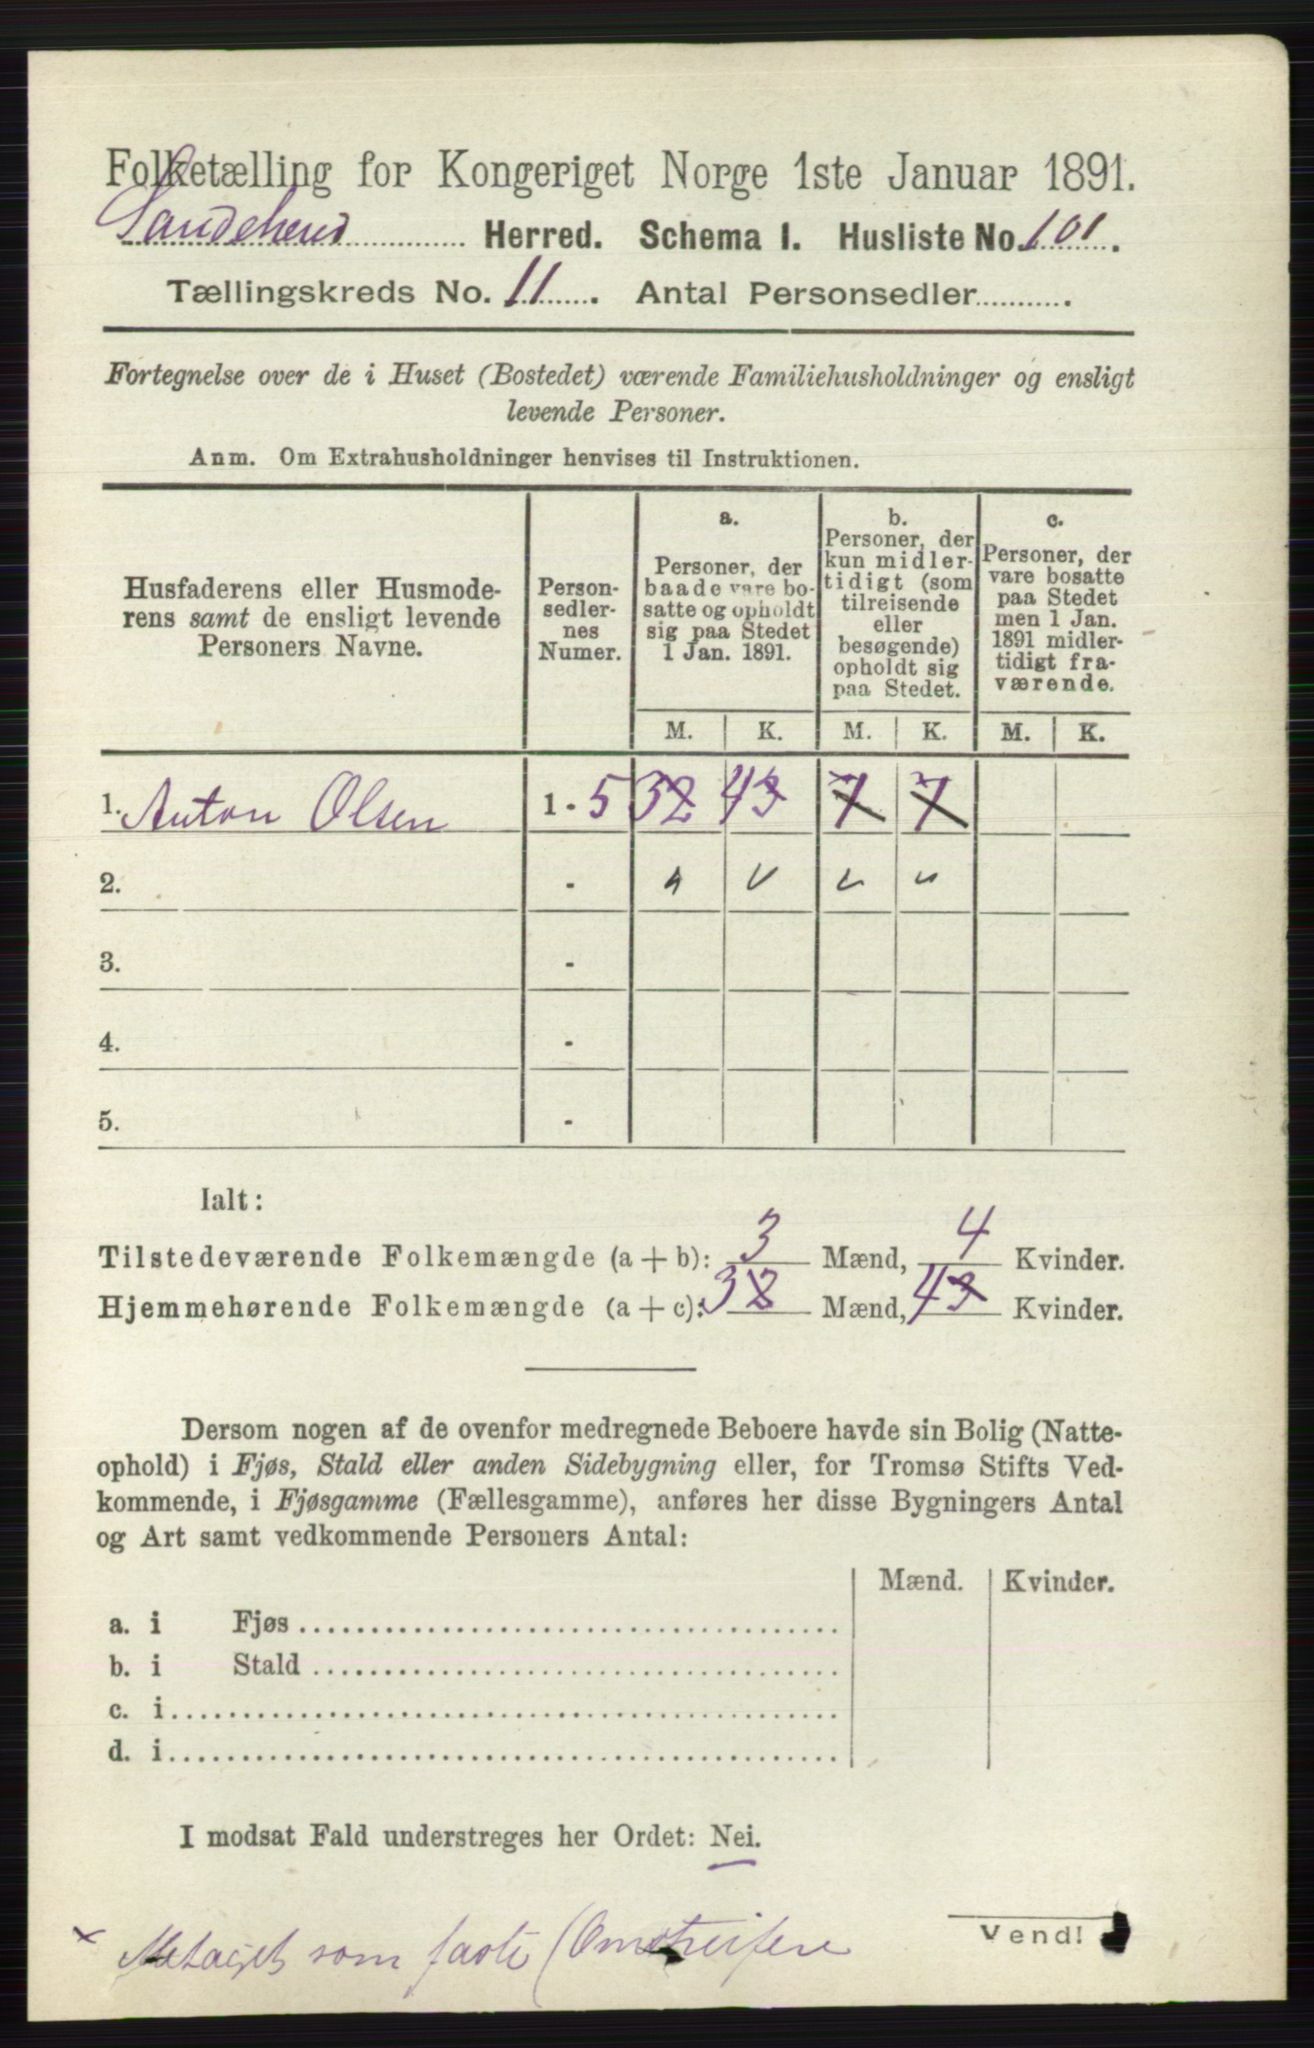 Folketælling for Kongeriget Norge 1ste Januar 1891.
Sandeherred Herred. Schema I. Husliste No. 101.
Tællingskreds No. 11. Antal Personsedler...........
Fortegnelse over de i Huset (Bostedet) værende Familiehusholdninger og ensligt
levende Personer.
Anm. Om Extrahusholdninger henvises til Instruktionen.
Husfaderens eller Husmode-
rens samt de ensligt levende
Personers Navne.
Person-
sedler-
nes
Numer.
a.
Personer, der
baade vare bo-
satte og opholdt
sig paa Stedet
1 Jan. 1891.
b.
Personer, der
kun midler-
tidigt (som
tilreisende
eller
besøgende)
opholdt sig
paa Stedet.
c.
Personer, der
vare bosatte
paa Stedet
men 1 Jan.
1891 midler-
tidigt fra-
værende.
M. K. M. K. M. K.
1. Anton Olsen 1 - 5 32 43
2. -
3. -
4. -
5. -
Ialt:
Tilstedeværende Folkemængde (a + b): 3 Mænd, 4 Kvinder.
Hjemmehørende Folkemængde (a + c): 32 Mænd, 43 Kvinder.
Dersom nogen af de ovenfor medregnede Beboere havde sin Bolig (Natte-
ophold) i Fjøs, Stald eller anden Sidebygning eller, for Tromsø Stifts Ved-
kommende, i Fjøsgamme (Fællesgamme), anføres her disse Bygningers Antal
og Art samt vedkommende Personers Antal:
Mænd. Kvinder.
a. i Fjøs
b. i Stald
c. i
d. i
I modsat Fald understreges her Ordet: Nei.
Vend!
som faste (Omstreifere